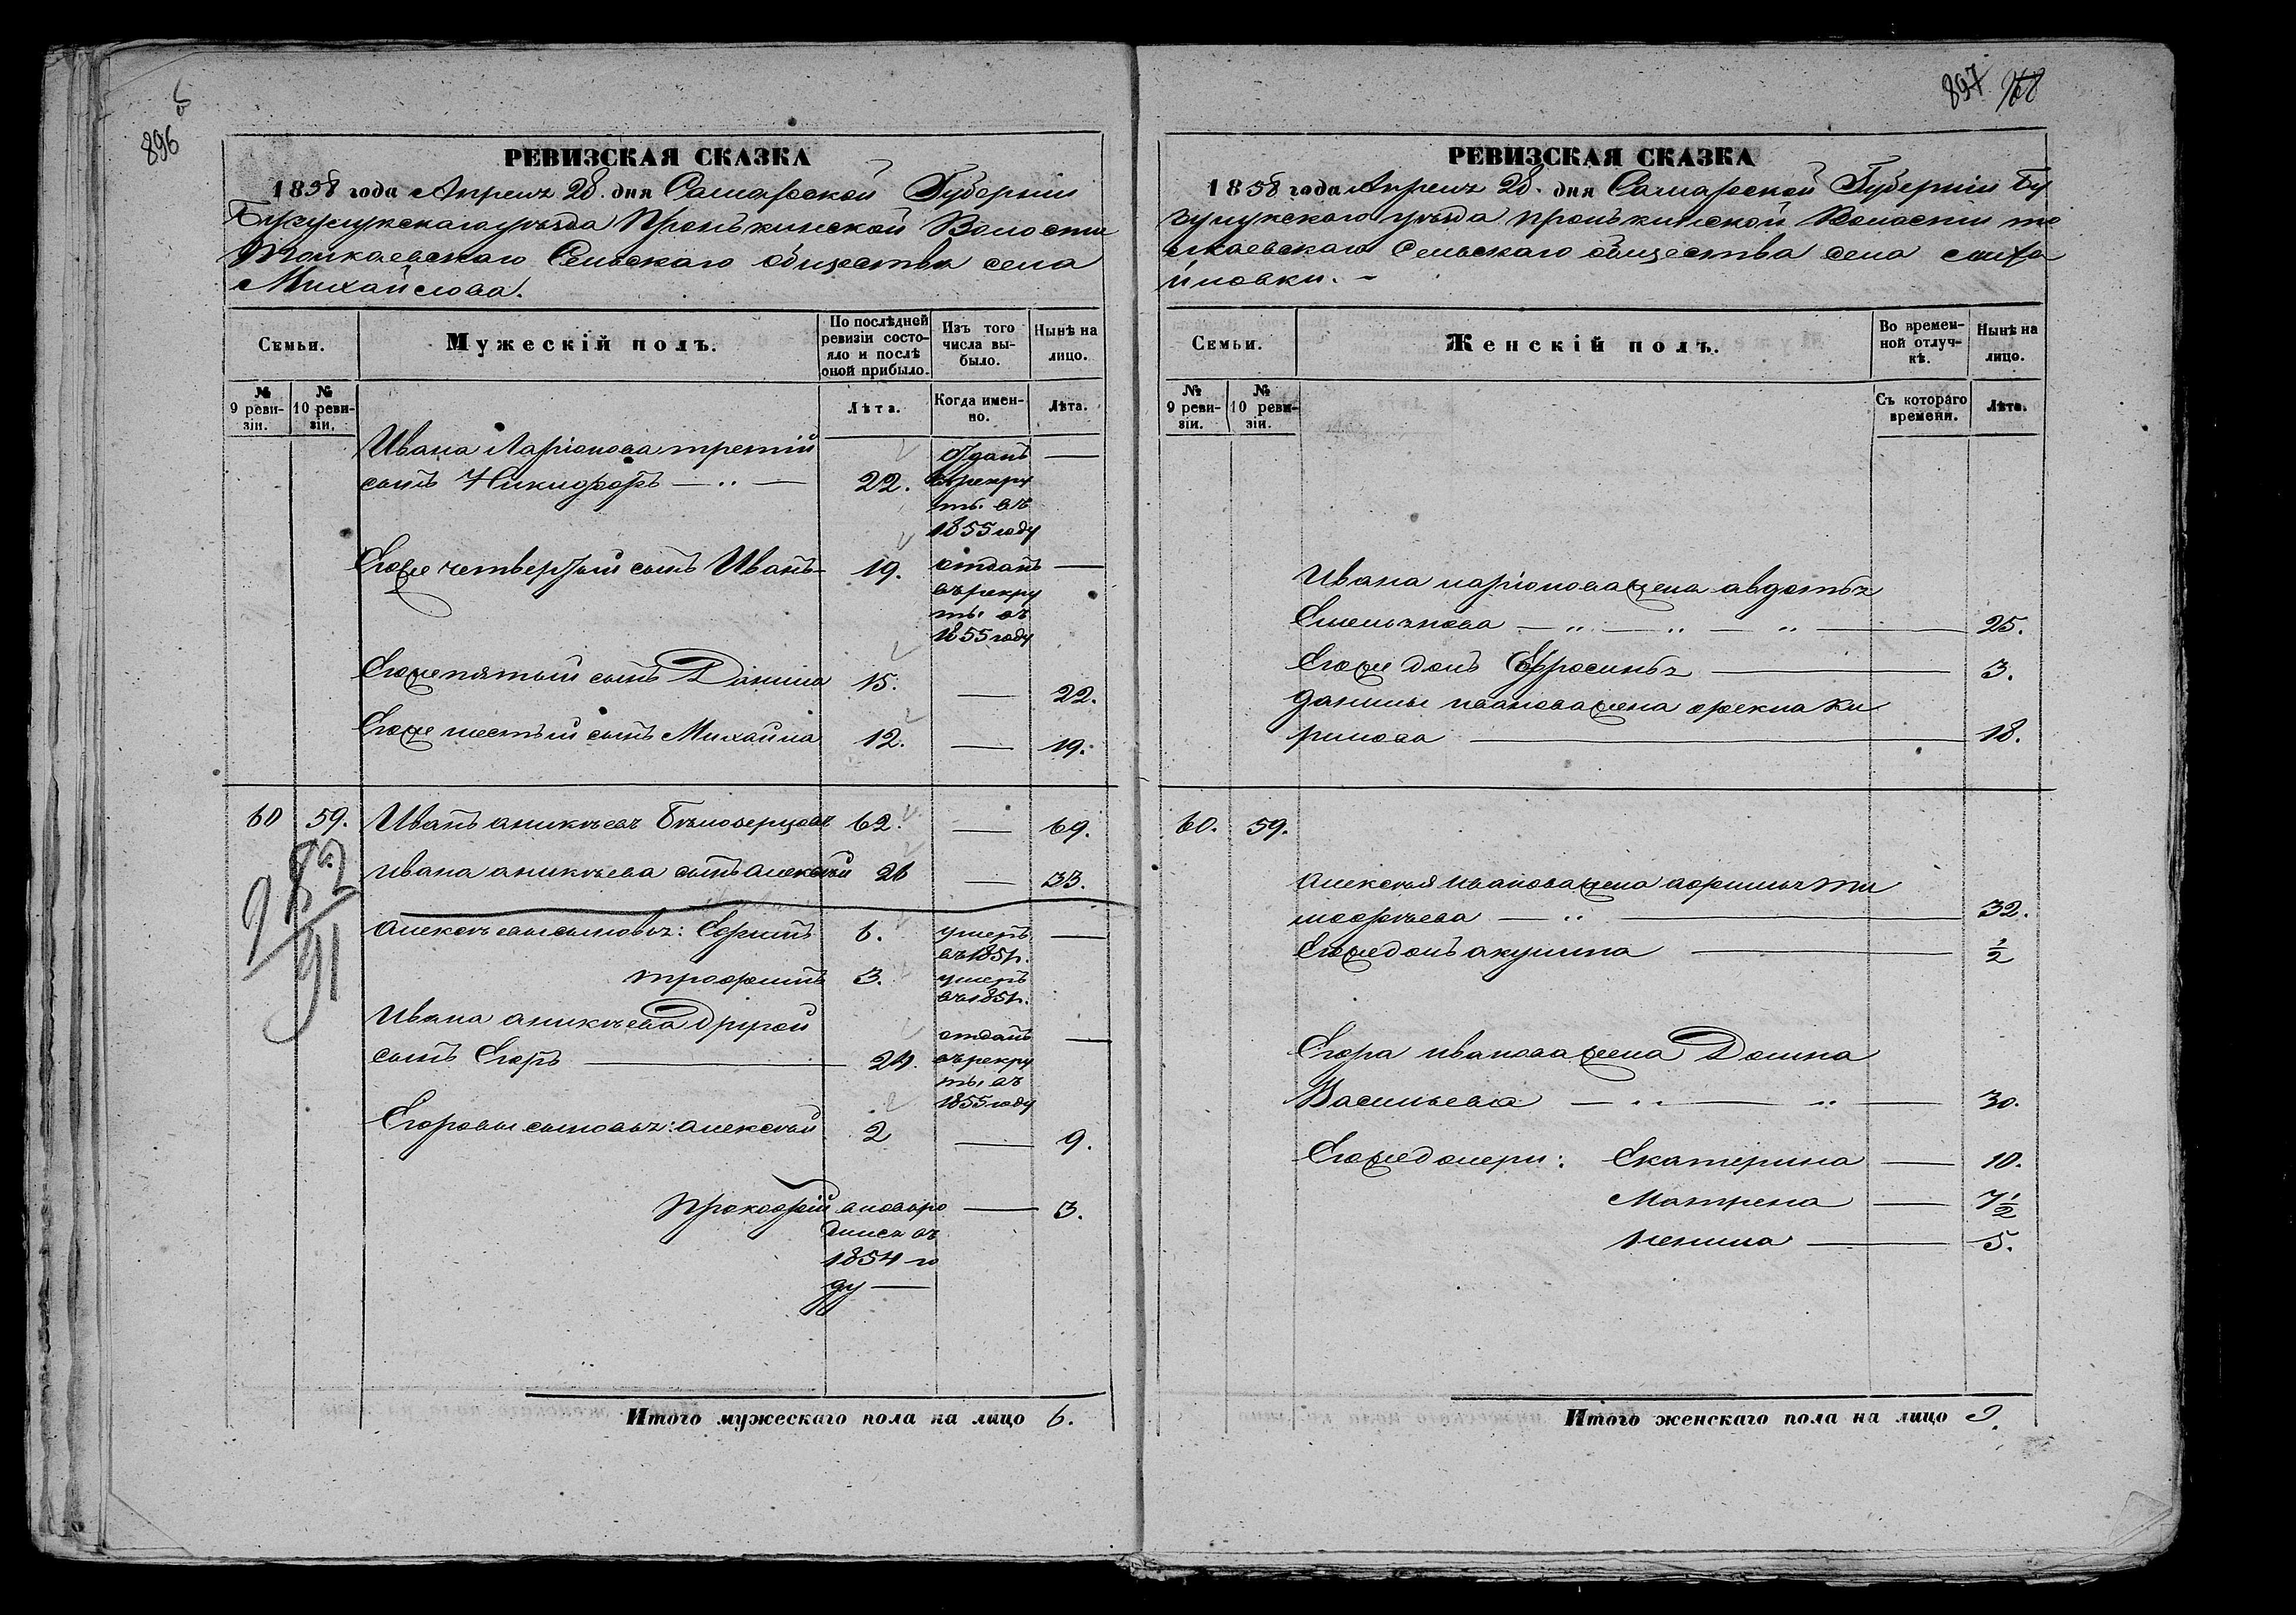 896
РЕВИЗСКАЯ СКАЗКА
1858 года Апреля 28. дня Самарской Губернiи
Бузулукскаго уѣзда Пронькинской Волости
Толкаевскаго Сельскаго общества села
Михайлова.
Семьи.
Мужескiй полъ.
По послѣдней ревизiи состояло и послѣ оной прибыло.
Изъ того числа выбыло.
Нынѣ на лицо.
№ 9 ревизiи.
№ 10 ревизiи.
Лѣта.
Когда именно.
Лѣта.
Ивана Ларiонова третiй
сынъ Никифоръ — „ — 22. отданъ въ рекруты въ 1855 году —
Егоже четвертый сынъ Иванъ 19. отданъ въ рекруты въ 1855 году —
Егоже пятый сынъ Данила 15. — 22.
Егоже шестый сынъ Михайла 12. — 19.
60 59. Иванъ аникѣевъ Бѣлозерцовъ 62. — 69.
Ивана аникѣева сынъ алексѣй 26 — 33.
алексѣевы сыновья: Ефимъ 6. умеръ въ 1851 г. —
трофимъ 3. умеръ въ 1851 г.
Ивана аникѣева Другой
сынъ Егоръ — 24. отданъ въ рекруты въ 1855 году —
Егоровы сыновья: алексѣй 2 — 9.
прокофiй вновь родился въ 1854 году — — 3.
Итого мужескаго пола на лицо 6.
897
РЕВИЗСКАЯ СКАЗКА
1858 года Апреля 28. дня Самарской Губернiи Бу
зулукского уѣзда пронькинской Волости то
лкаевскаго Сельскаго общества села миха
йловки. –
Семьи.
Женскiй полъ.
Во временной отлучкѣ.
Нынѣ на лицо.
№ 9 ревизiи.
№ 10 ревизiи.
Съ котораго времени.
Лѣта.
Ивана ларiонова жена авдотья
Емельянова — „ — „ — „ — 25.
Егоже дочь Ефросинья — 3.
данилы иванова жена фекла Ки
рилова — 18.
60. 59.
алексѣя иванова жена афимья ти
мофѣева — „ — 32.
Егоже дочь акулина — ½
Егора иванова жена Домна
Васильева — „ — „ — 30.
Егоже дочери: Екатерина — 10.
Матрена — 7½
ненила — 5.
Итого женскаго пола на лицо 9.